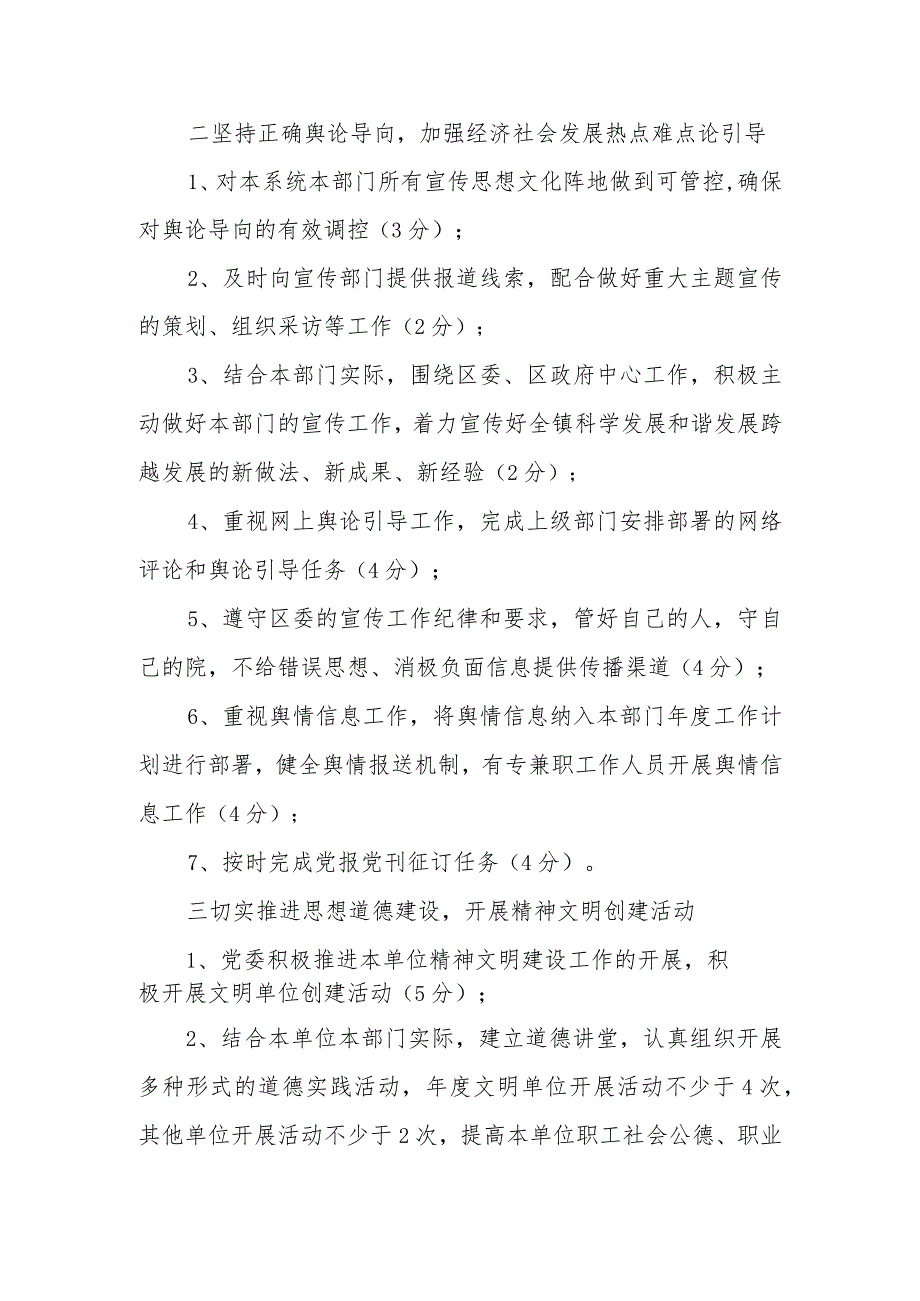 二坚持正确舆论导向，加强经济社会发展热点难点论引导
1、对本系统本部门所有宣传思想文化阵地做到可管控,确保
对舆论导向的有效调控（3分）；
2、及时向宣传部门提供报道线索，配合做好重大主题宣传
的策划、组织采访等工作（2分）；
3、结合本部门实际，围绕区委、区政府中心工作，积极主
动做好本部门的宣传工作，着力宣传好全镇科学发展和谐发展跨
越发展的新做法、新成果、新经验（2分）；
4、重视网上舆论引导工作，完成上级部门安排部署的网络
评论和舆论引导任务（4分）；
5、遵守区委的宣传工作纪律和要求，管好自己的人，守自
己的院，不给错误思想、消极负面信息提供传播渠道（4分）；
6、重视舆情信息工作，将舆情信息纳入本部门年度工作计
划进行部署，健全舆情报送机制，有专兼职工作人员开展舆情信
息工作（4分）；
7、按时完成党报党刊征订任务（4分）。
三切实推进思想道德建设，开展精神文明创建活动
1、党委积极推进本单位精神文明建设工作的开展，积
极开展文明单位创建活动（5分）；
2、结合本单位本部门实际，建立道德讲堂，认真组织开展
多种形式的道德实践活动，年度文明单位开展活动不少于4次，
其他单位开展活动不少于2次，提高本单位职工社会公德、职业